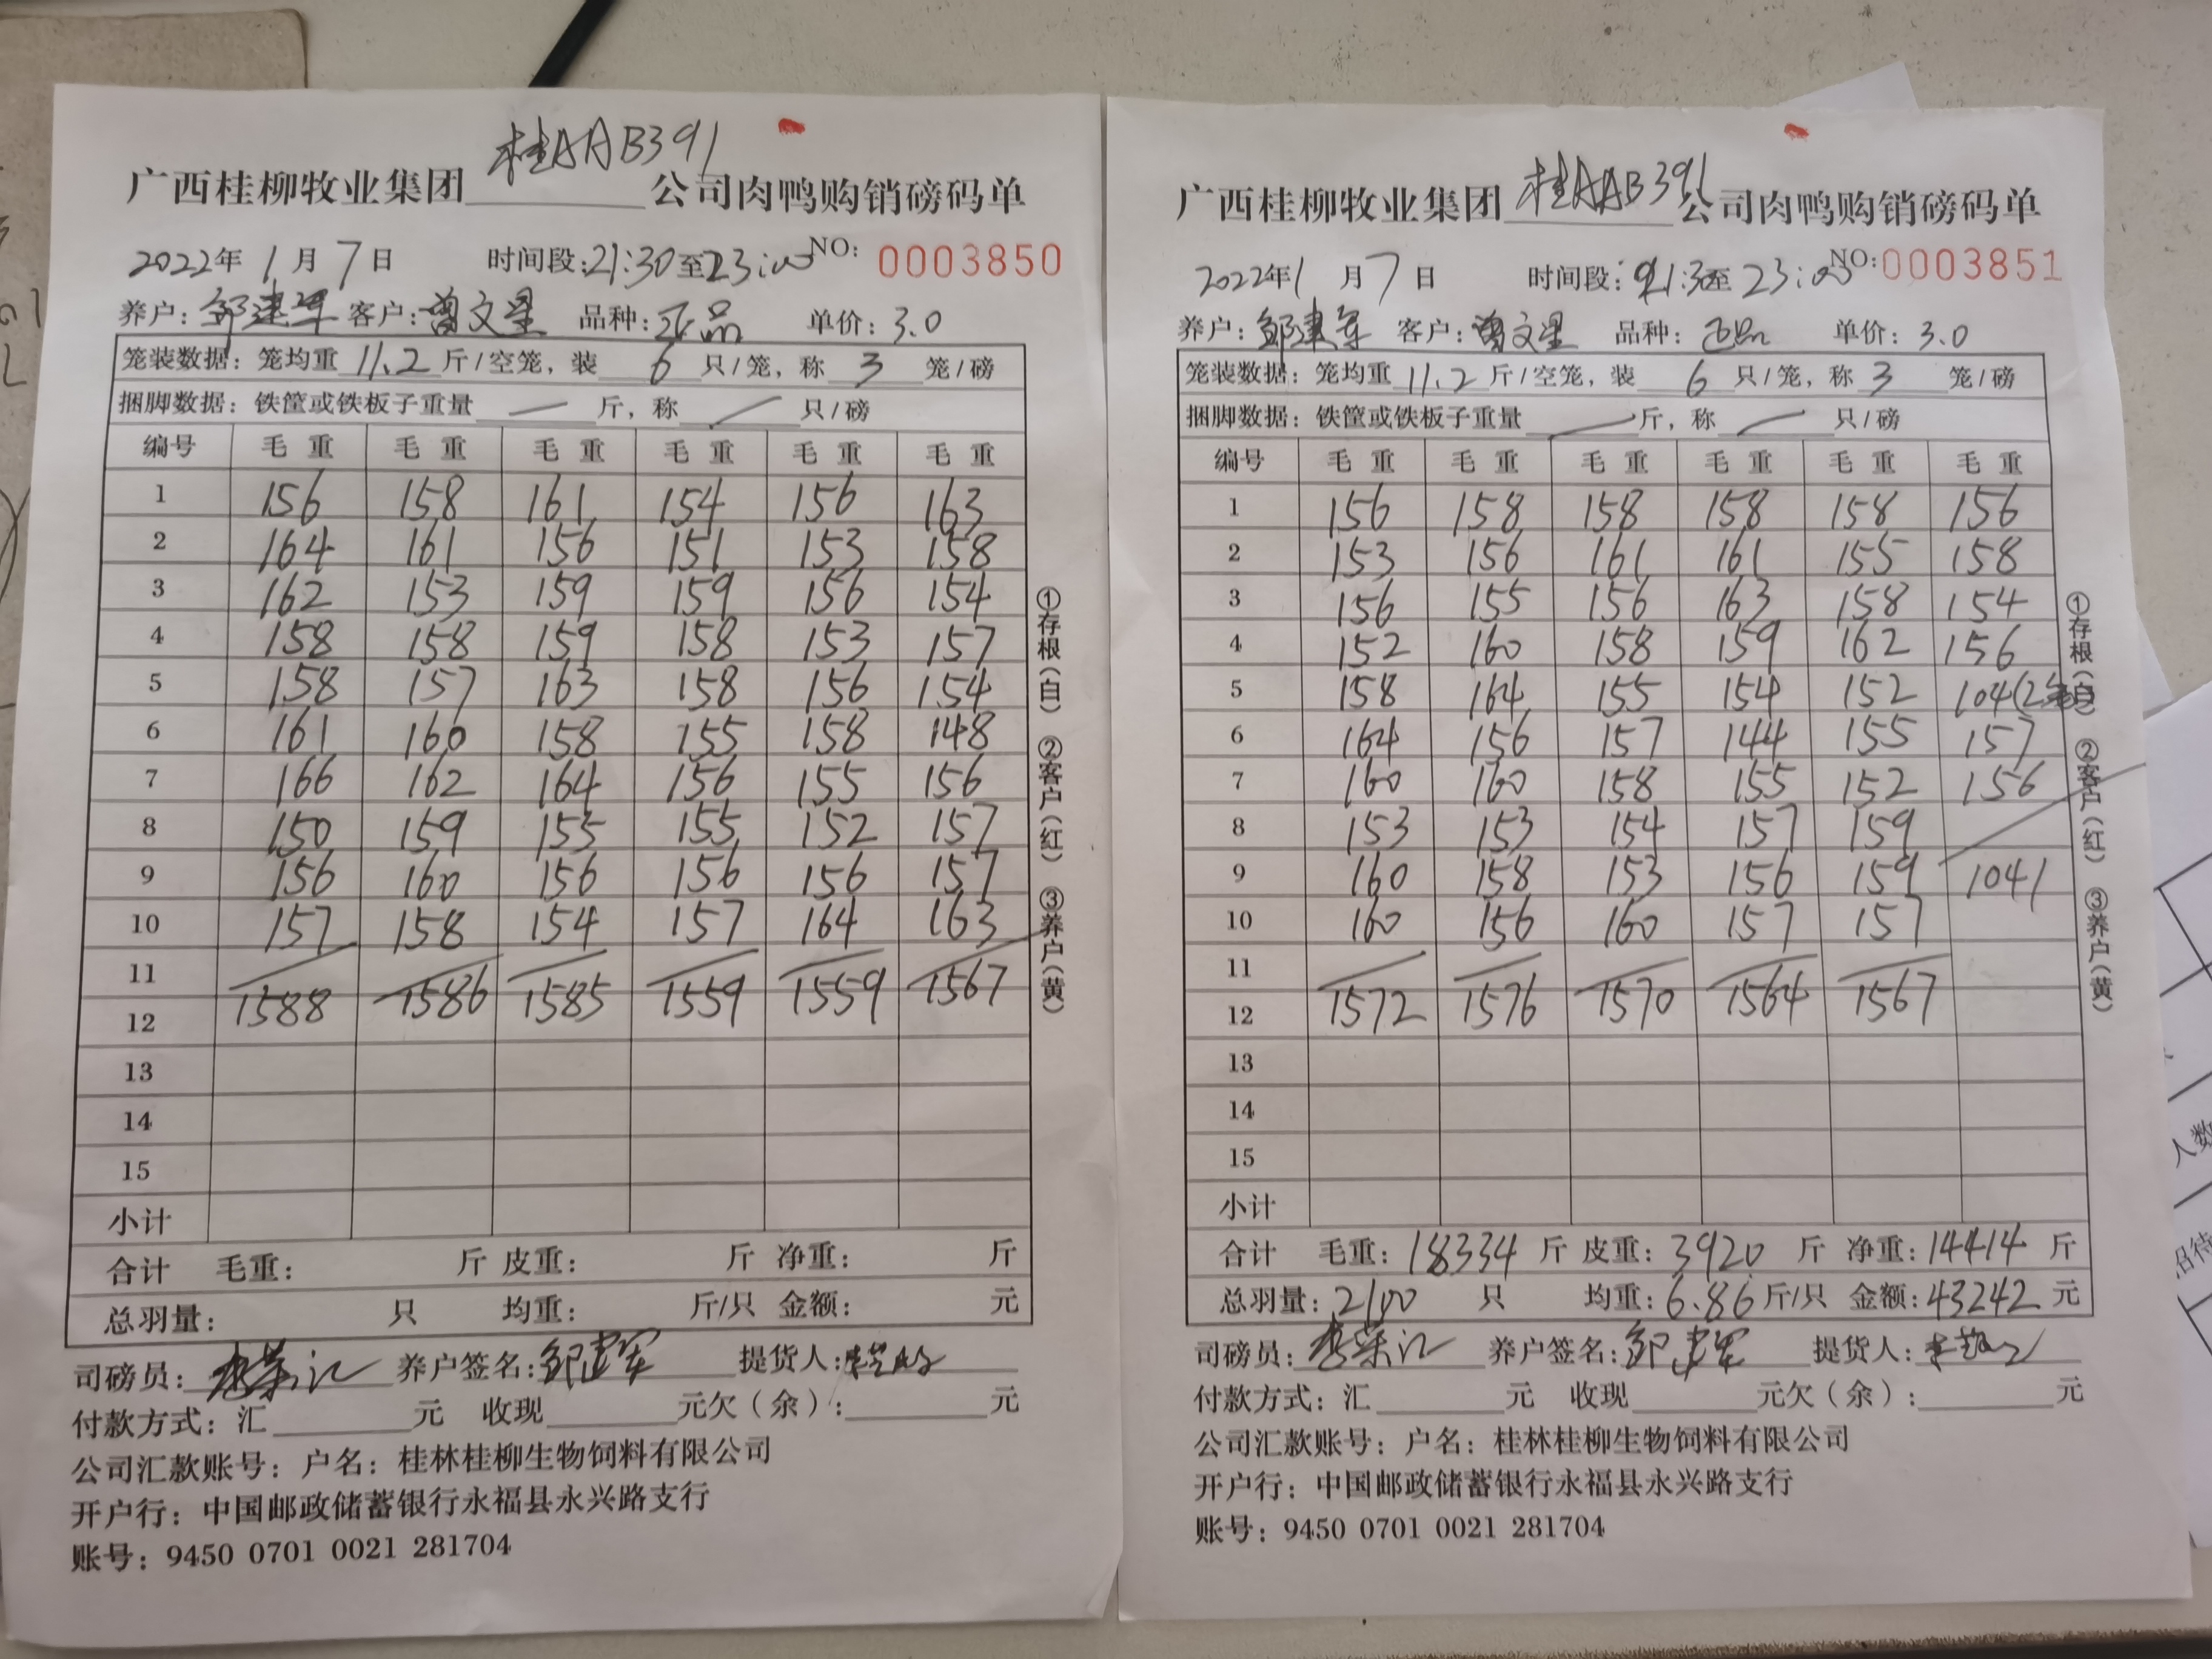 广西桂柳牧业集团桂AAB391公司肉鸭购销磅码单
2022年1月7日 时间段:21:30至23:00 NO: 0003850
养户:邹建军 客户:曾文星 品种:正品 单价:3.0
笼装数据:笼均重11.2斤/空笼,装6只/笼,称3笼/磅
捆脚数据:铁筐或铁板子重量—斤,称—只/磅
编号 毛重 毛重 毛重 毛重 毛重 毛重
1 156 158 161 154 156 163
2 164 161 156 151 153 158
3 162 153 159 159 156 154
4 158 158 159 158 153 157
5 158 157 163 158 156 154
6 161 160 158 155 158 148
7 166 162 164 156 155 156
8 150 159 155 155 152 157
9 156 160 156 156 156 157
10 157 158 154 157 164 163
11
12 1588 1586 1585 1559 1559 1567
13
14
15
小计
合计 毛重: 斤 皮重: 斤 净重: 斤
总羽量: 只 均重: 斤/只 金额: 元
司磅员: 养户签名:邹建军 提货人:
付款方式:汇 元 收现 元欠(余): 元
公司汇款账号:户名:桂林桂柳生物饲料有限公司
开户行:中国邮政储蓄银行永福县永兴路支行
账号:9450 0701 0021 281704
①存根(白) ②客户(红) ③养户(黄)
广西桂柳牧业集团桂AAB391公司肉鸭购销磅码单
2022年1月7日 时间段:21:30至23:00 NO: 0003851
养户:邹建军 客户:曾文星 品种:正品 单价:3.0
笼装数据:笼均重11.2斤/空笼,装6只/笼,称3笼/磅
捆脚数据:铁筐或铁板子重量—斤,称—只/磅
编号 毛重 毛重 毛重 毛重 毛重 毛重
1 156 158 158 158 158 156
2 153 156 161 161 155 158
3 156 155 156 163 158 154
4 152 160 158 159 162 156
5 158 164 155 154 152 104(2笼)
6 164 156 157 144 155 157
7 160 160 158 155 152 156
8 153 153 154 157 159
9 160 158 153 156 159 1041
10 160 156 160 157 157
11
12 1572 1576 1570 1564 1567
13
14
15
小计
合计 毛重:18334斤 皮重:3920斤 净重:14414斤
总羽量:2100只 均重:6.86斤/只 金额:43242元
司磅员: 养户签名:邹建军 提货人:
付款方式:汇 元 收现 元欠(余): 元
公司汇款账号:户名:桂林桂柳生物饲料有限公司
开户行:中国邮政储蓄银行永福县永兴路支行
账号:9450 0701 0021 281704
①存根(白) ②客户(红) ③养户(黄)
人数
招待